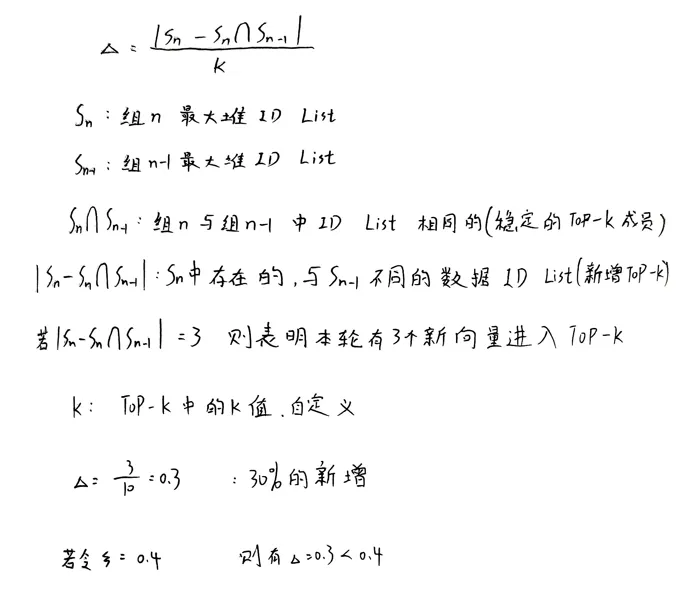 Δ = |Sn - Sn∩Sn-1| / k
Sn：组n 最大堆 ID List
Sn-1：组n-1最大堆 ID List
Sn∩Sn-1：组n与组n-1 中 ID List 相同的(稳定的Top-k成员)
|Sn-Sn∩Sn-1|：Sn中存在的,与Sn-1不同的数据ID List(新增Top-k)
若|Sn-Sn∩Sn-1|=3 则表明本轮有3个新向量进入Top-k
k： Top-k中的k值、自定义
Δ= 3/10 =0.3 ：30%的新增
若令 ξ=0.4 则有Δ=0.3<0.4